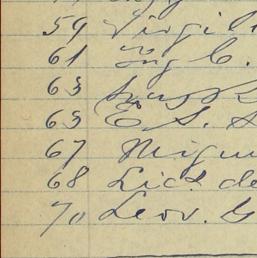 59 Virgil
61 Ing C.
63
63 E S. S
67 Migu
68 Licd. de
70 Leov. G